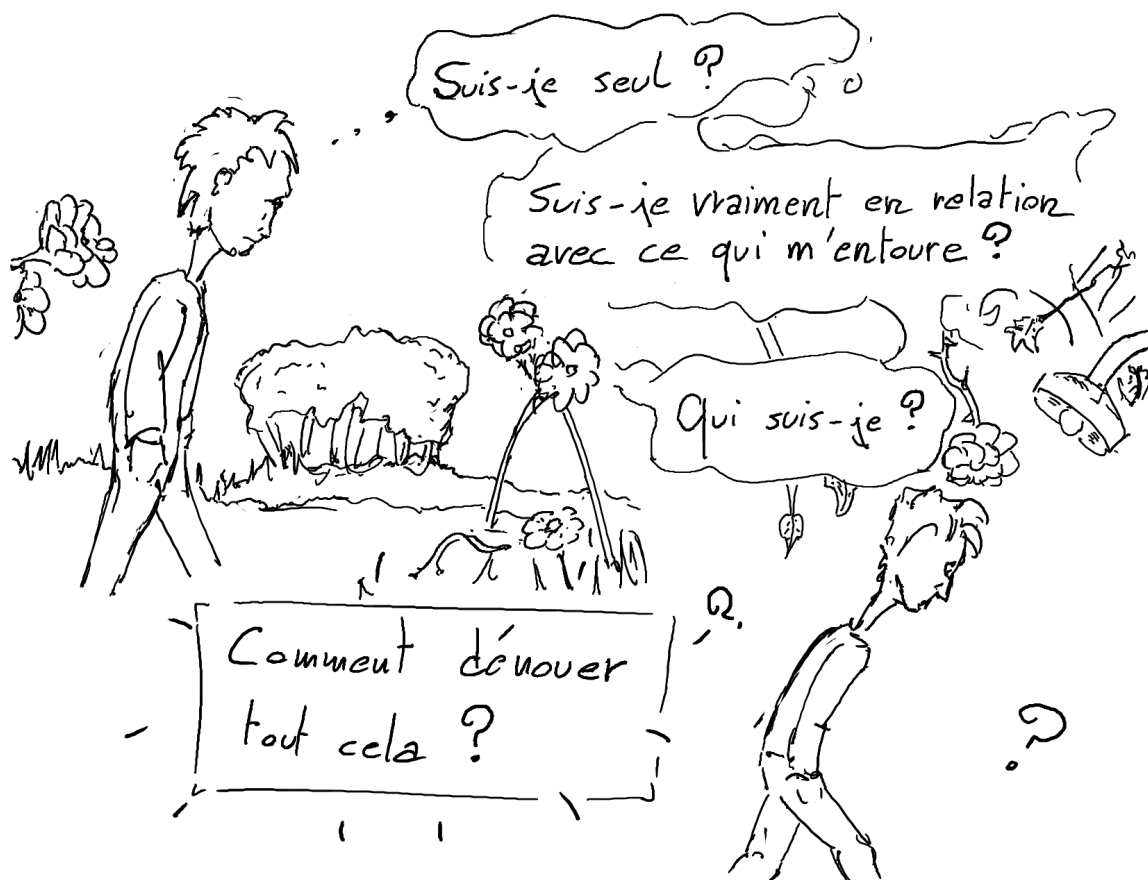 Suis-je seul ?
Suis-je vraiment en relation
avec ce qui m'entoure ?
Qui suis-je ?
Comment dénouer
tout cela ?
?
?